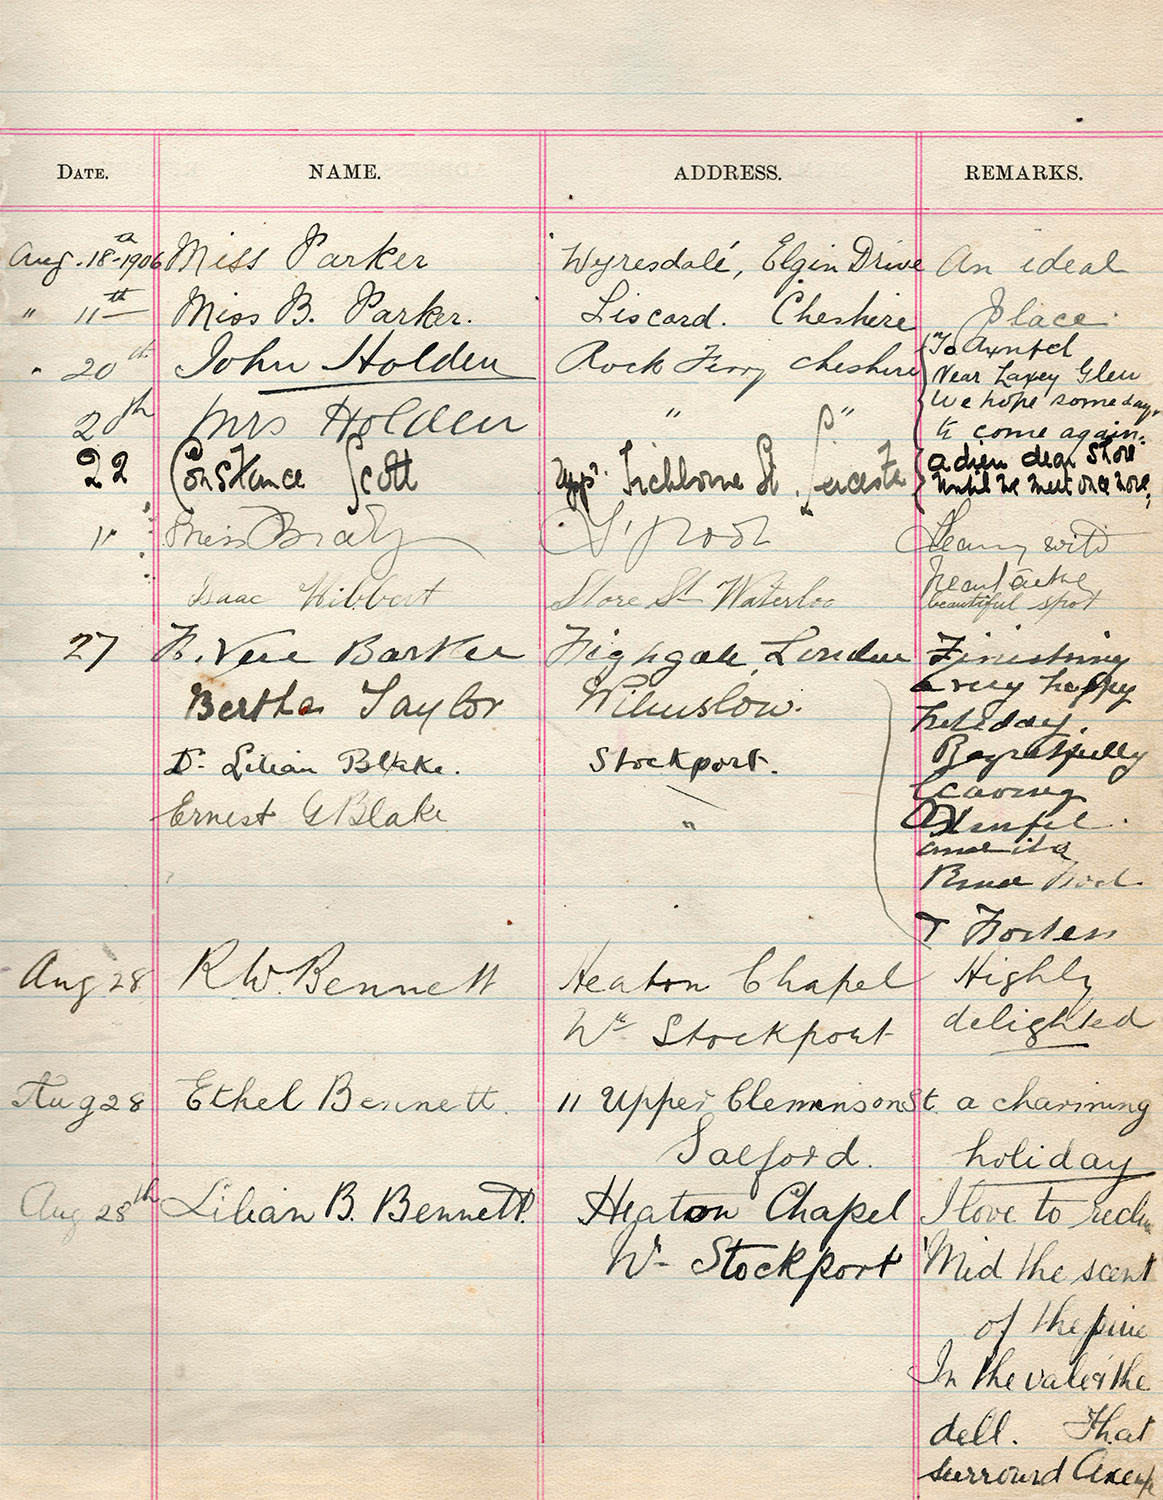 DATE. NAME. ADDRESS. REMARKS.
Aug. 18th 1906 Miss Parker Wyresdale, Elgin Drive An ideal
" 11th Miss B. Parker. Liscard. Cheshire place.
" 20th John Holden Rock Ferry Cheshire "To Axnfel
Near Laxey Glen
20th Mrs Holden " " We hope some day
to come again.
22 Constance Scott Upp. Tichborne St. Leicester adieu dear Spot
Until we meet once more,
" Miss L'pool Leaving with
Isaac Hibbert Store St Waterloo
beautiful spot
27 H. Vere Barker Highgate, London Finishing
a very happy
Bertha Taylor Wilmslow. holiday.
Dr. Lilian Blake. Stockport. Regretfully
leaving
Ernest G Blake " Axenfel.
and its
& Hostess
Aug 28 R W. Bennett Heaton Chapel Highly
Nr Stockport delighted
Aug 28 Ethel Bennett. 11 Upper Cleminson St. a charming
Salford. holiday
Aug 28th Lilian B. Bennett. Heaton Chapel I love to recline
Nr Stockport 'Mid the scent
of the pine
In the vale & the
dell. That
surround Axenfel